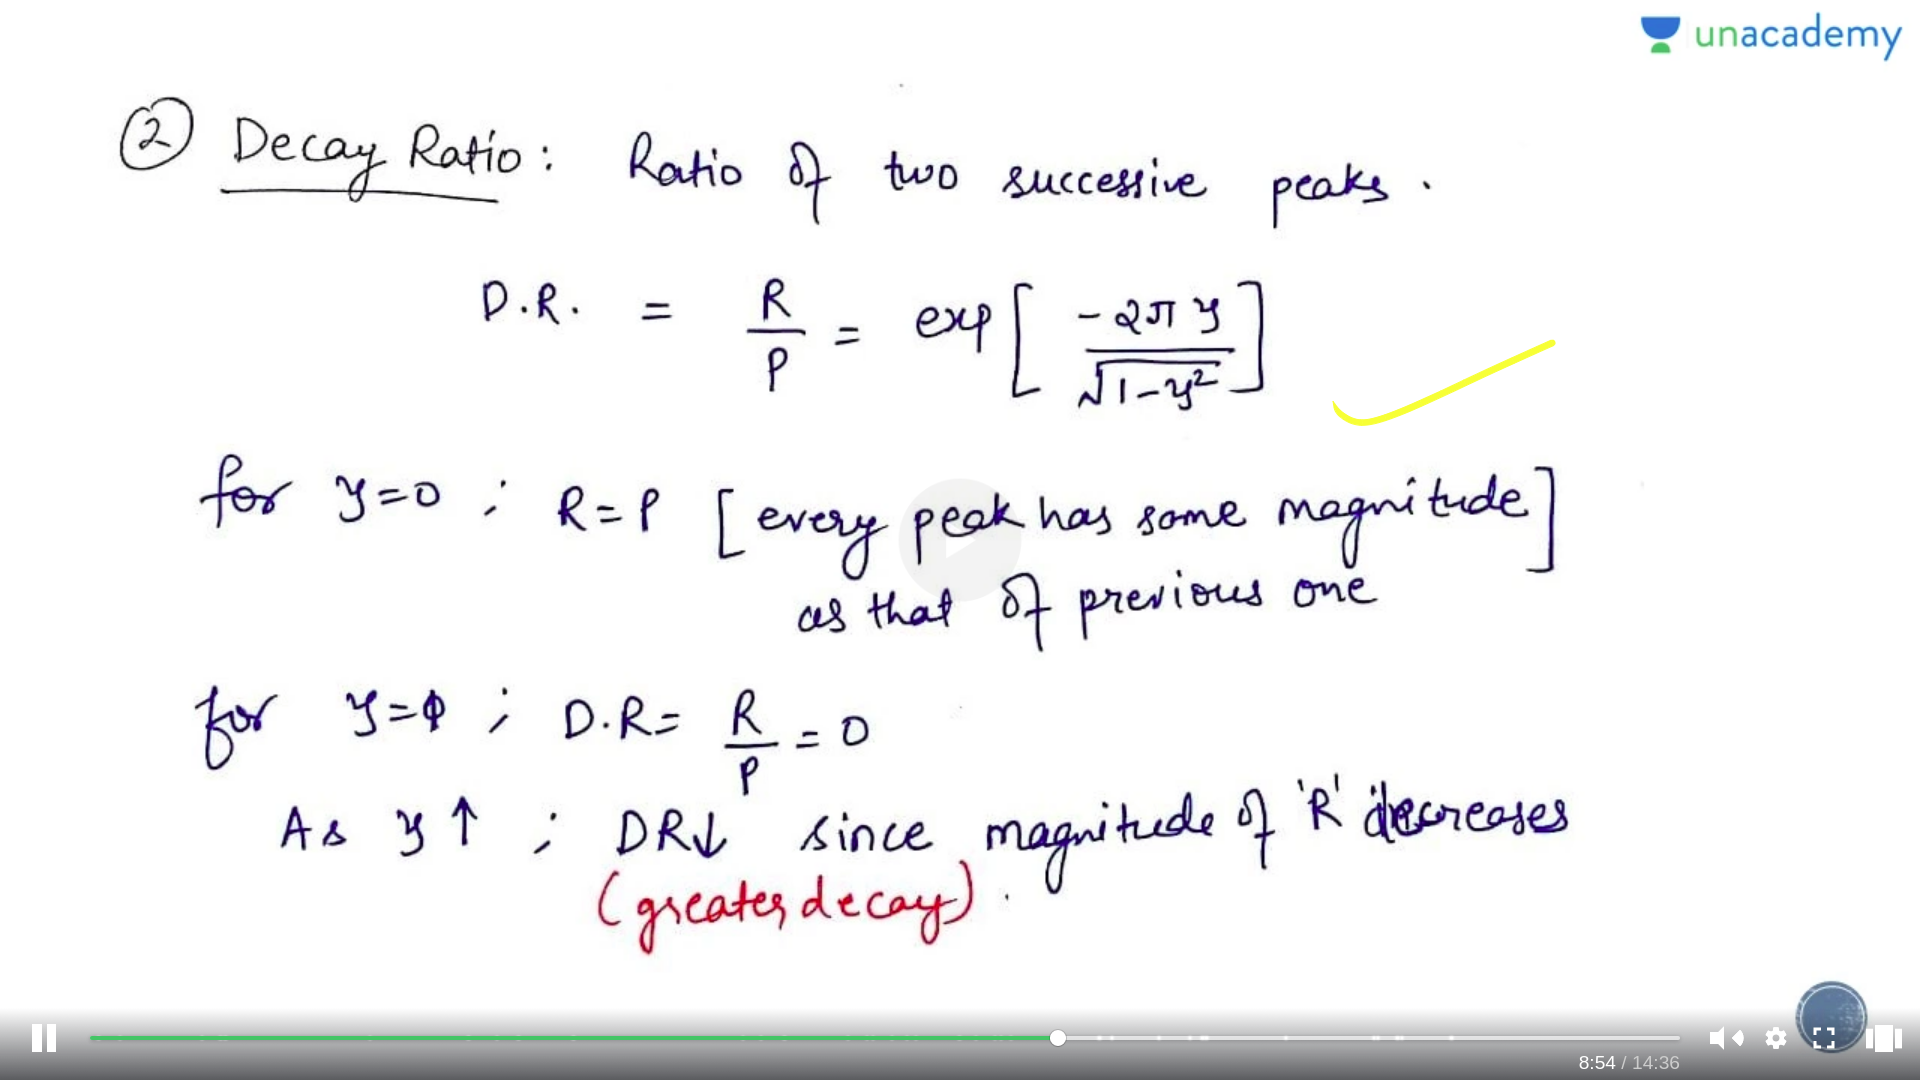 unacademy
② Decay Ratio : Ratio of two successive peaks .
D.R. = R/P = exp [ -2π ζ / √1-ζ² ]
for ζ=0 ; R=P [every peak has same magnitude]
as that of previous one
for ζ=1 ; D.R = R/P = 0
As ζ ↑ ; DR↓ since magnitude of 'R' decreases
(greater decay) .
8:54 / 14:36